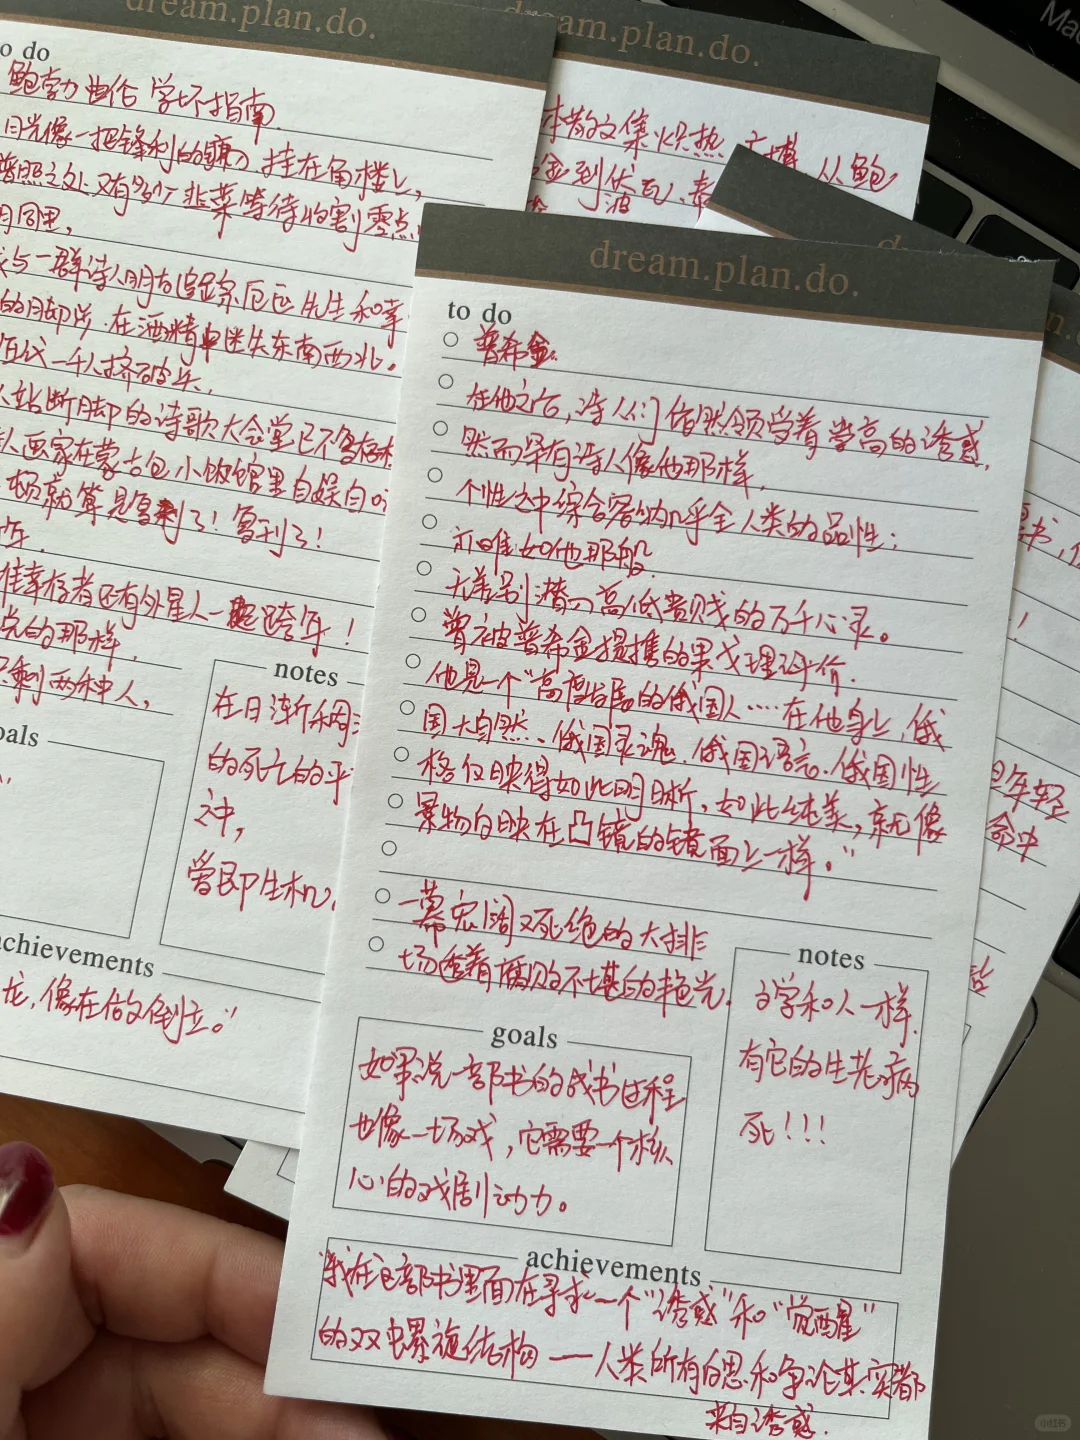 dream.plan.do.
to do
鲍勃迪伦 学坏指南.
月光像一把锋利的镰刀,挂在角楼上,
普照之处又有多少韭菜等待收割零点
与一群诗人朋友追踪厄运先生和幸
的脚步.在酒精中迷失东南西北.
千人挤破头.
站断脚的诗歌大会堂已不复存在
人画家在蒙古包小饭馆里自娱自
杨就算是写到了!写到了!
年.
幸存者还有外星人一起跨年!
的那样,
剩两种人,
notes
在日渐稠
的死亡的平
之中,
爱即生机.
als
achievements
龙,像在做倒立。”
dream.plan.do.
本散文集炽热
金到伏尔
波
从鲍
dream.plan.do.
to do
普希金.
在他之后,诗人们依然领受着崇高的诱惑,
然而罕有诗人像他那样,
个性之中综合容纳几乎全人类的品性;
亦唯如他那般,
无差别潜入高低贵贱的万千心灵。
曾被普希金提携的果戈理评价.
他是一个“高度发展的俄国人....在他身上,俄
国大自然、俄国灵魂.俄国语言.俄国性
格反映得如此明晰,如此纯美,就像
景物反映在凸镜的镜面上一样。”
一幕宏阔又死绝的大排
场透着腐败不堪的艳光.
notes
文学和人一样.
有它的生老病
死!!!
goals
如果说一部书的成书过程
也像一场戏,它需要一个核
心的戏剧动力。
achievements
我在这部书里面在寻求一个“诱惑”和“觉醒”
的双螺旋结构——人类所有的思和争论其实都
来自诱惑.
书,
!
年轻
命中
小红书